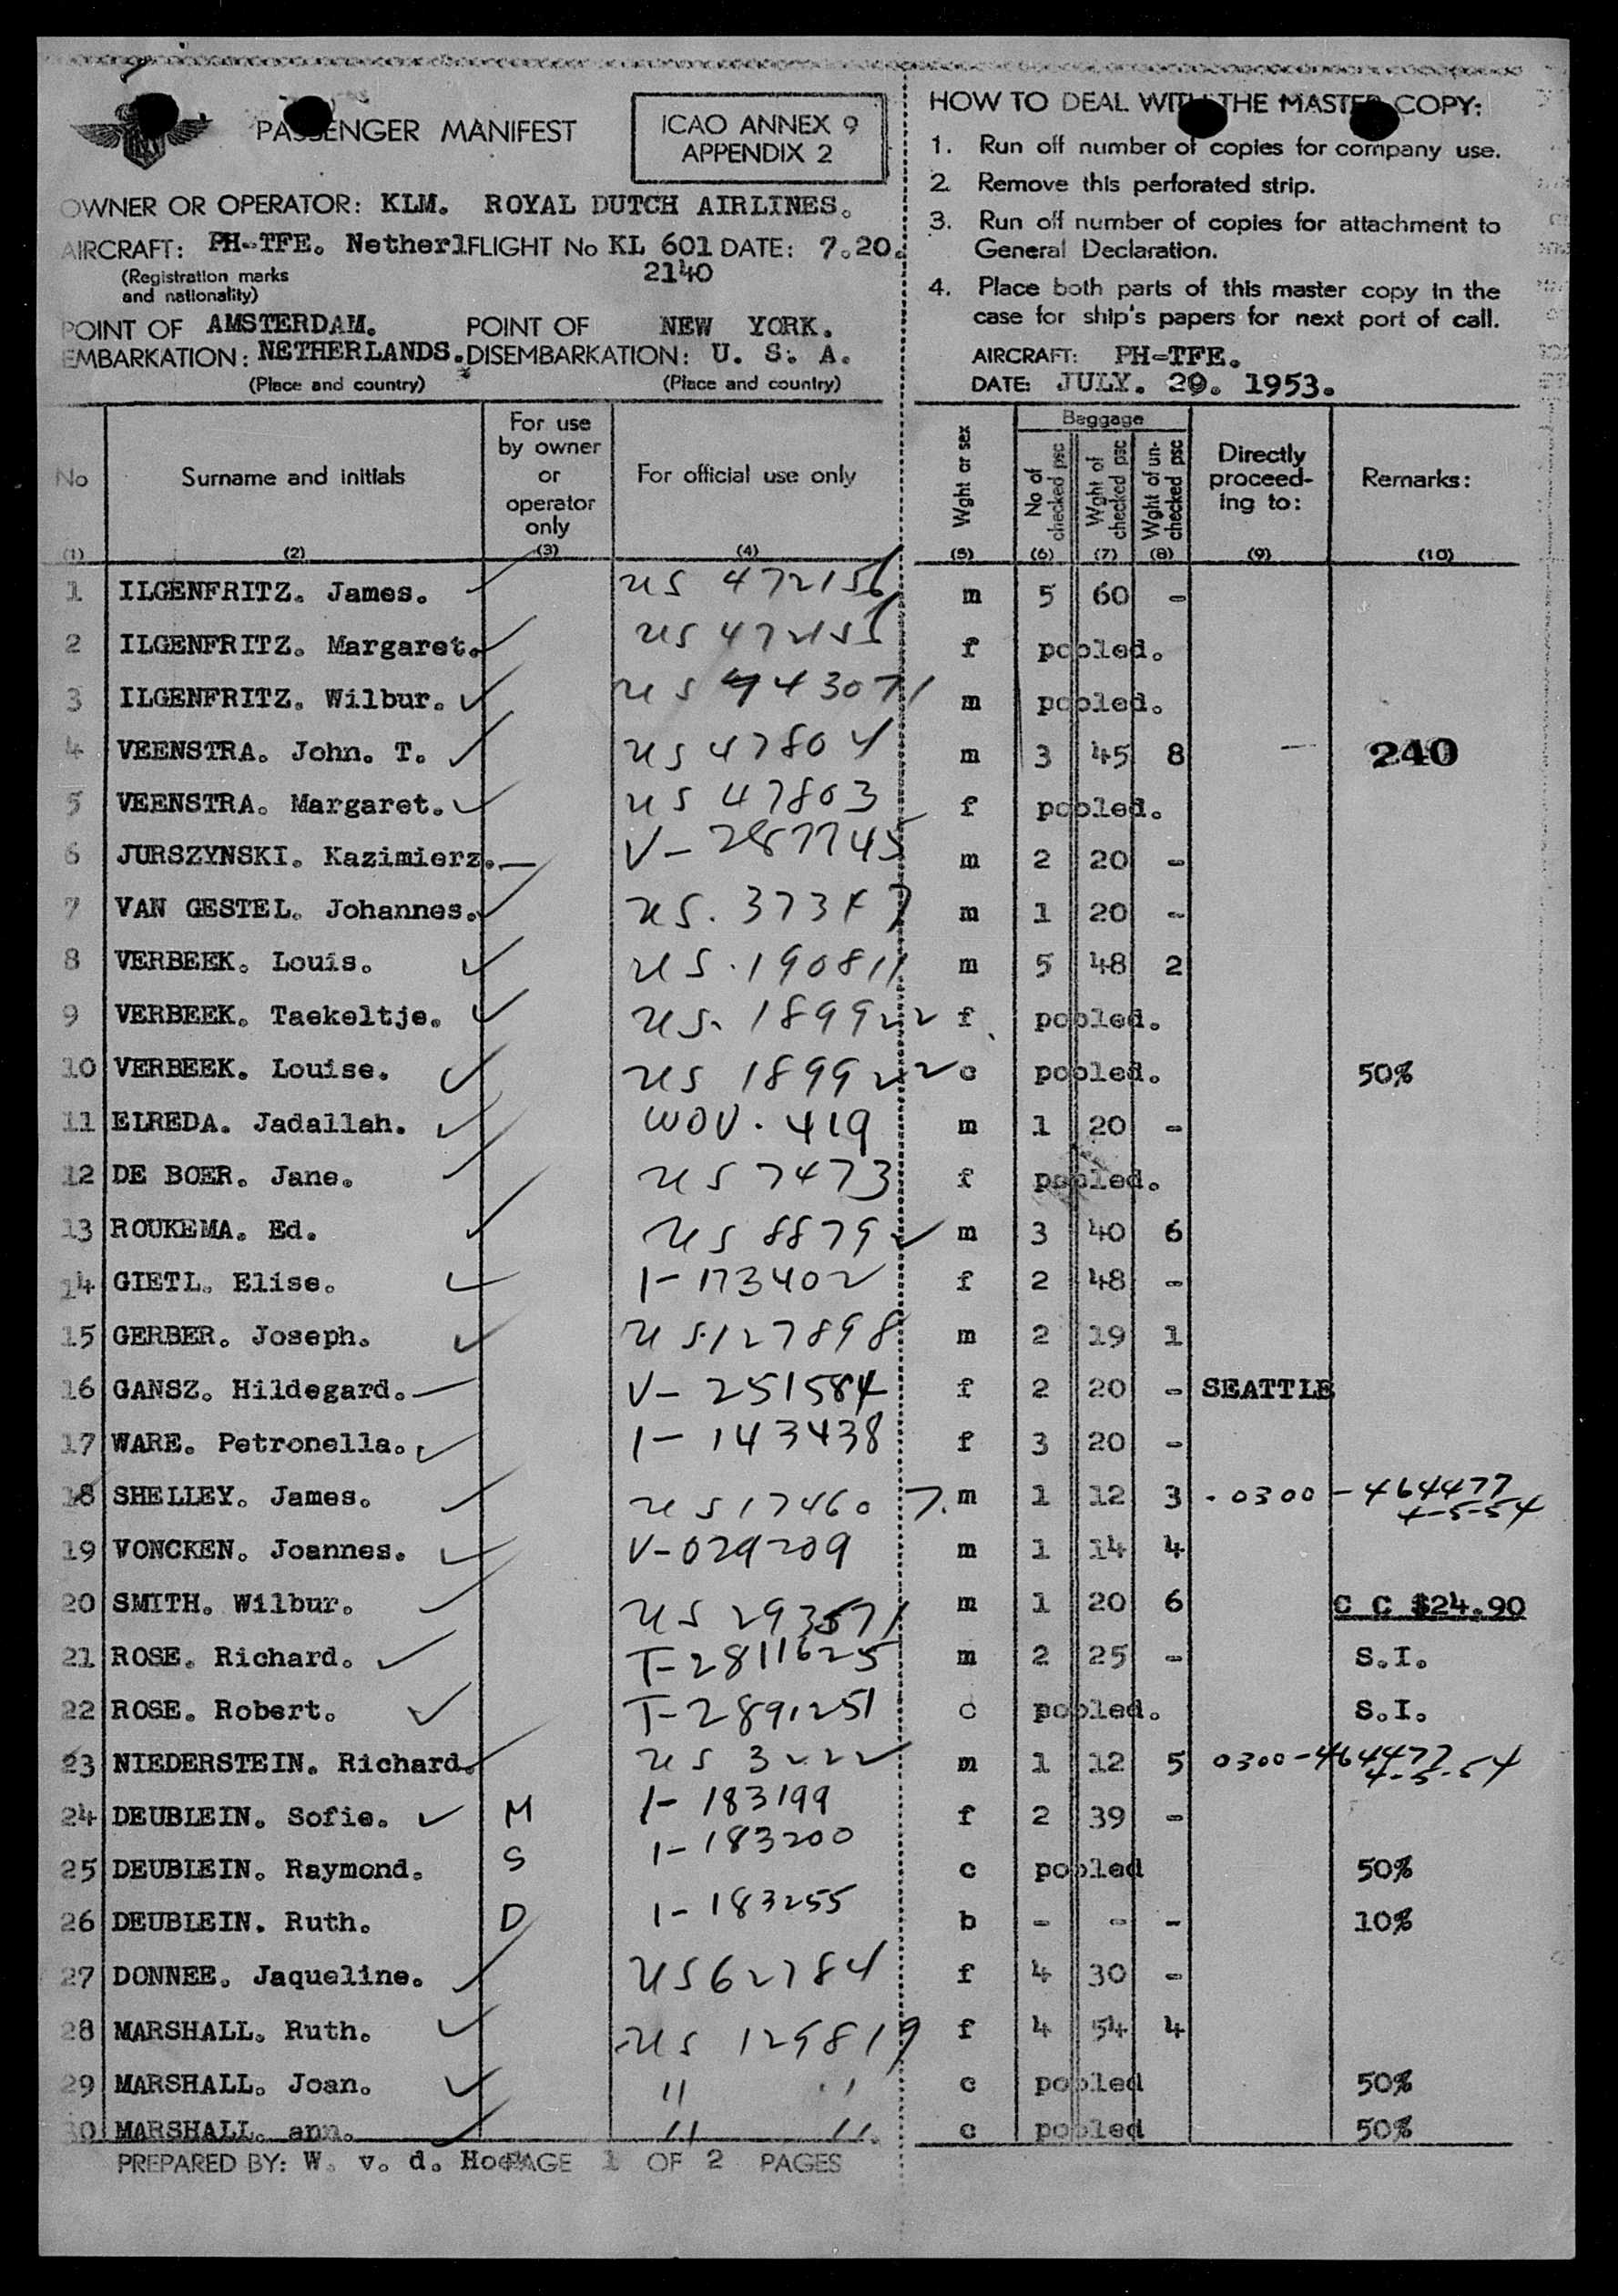 PASSENGER MANIFEST
ICAO ANNEX 9
APPENDIX 2
OWNER OR OPERATOR: KLM. ROYAL DUTCH AIRLINES.
AIRCRAFT: PH-TFE. Netherl FLIGHT No KL 601 DATE: 7.20.
(Registration marks
and nationality)
2140
POINT OF EMBARKATION: AMSTERDAM. NETHERLANDS.
(Place and country)
POINT OF DISEMBARKATION: NEW YORK. U. S. A.
(Place and country)
HOW TO DEAL WITH THE MASTER COPY:
1. Run off number of copies for company use.
2. Remove this perforated strip.
3. Run off number of copies for attachment to
General Declaration.
4. Place both parts of this master copy in the
case for ship's papers for next port of call.
AIRCRAFT: PH-TFE.
DATE: JULY. 20. 1953.
No (1)
Surname and initials (2)
For use by owner or operator only (3)
For official use only (4)
Wght or sex (5)
Baggage
No of checked psc (6)
Wght of checked psc (7)
Wght of un-checked psc (8)
Directly proceed-ing to: (9)
Remarks: (10)
1 ILGENFRITZ. James. US 472156 m 5 60 -
2 ILGENFRITZ. Margaret. US 472155 f pooled.
3 ILGENFRITZ. Wilbur. m pooled.
4 VEENSTRA. John. T. US 47804 m 3 45 8 — 240
5 VEENSTRA. Margaret. US 47803 f pooled.
6 JURSZYNSKI. Kazimierz. V-287745 m 2 20 -
7 VAN GESTEL. Johannes. US. 37347 m 1 20 -
8 VERBEEK. Louis. US. 190811 m 5 48 2
9 VERBEEK. Taekeltje. US. 189922 f pooled.
10 VERBEEK. Louise. US 189922 c pooled. 50%
11 ELREDA. Jadallah. WOV. 419 m 1 20 -
12 DE BOER. Jane. US 7473 f pooled.
13 ROUKEMA. Ed. US 88792 m 3 40 6
14 GIETL. Elise. 1-173402 f 2 48 -
15 GERBER. Joseph. US.127898 m 2 19 1
16 GANSZ. Hildegard. V-251584 f 2 20 - SEATTLE
17 WARE. Petronella. 1-143438 f 3 20 -
18 SHELLEY. James. US 17460 7. m 1 12 3 .0300-464477
4-5-54
19 VONCKEN. Joannes. V-029209 m 1 14 4
20 SMITH. Wilbur. US 293571 m 1 20 6 C C $24.90
21 ROSE. Richard. T-2811625 m 2 25 - S.I.
22 ROSE. Robert. T-2891251 c pooled. S.I.
23 NIEDERSTEIN. Richard. US 3222 m 1 12 5 0300-464477
4-5-54
24 DEUBLEIN. Sofie. M 1-183199 f 2 39 -
25 DEUBLEIN. Raymond. S 1-183200 c pooled 50%
26 DEUBLEIN. Ruth. D 1-183255 b - - - 10%
27 DONNEE. Jaqueline. US62784 f 4 30 -
28 MARSHALL. Ruth. US 129819 f 4 54 4
29 MARSHALL. Joan. " " c pooled 50%
30 MARSHALL. ann. " ". c pooled 50%
PREPARED BY: W. v. d. PAGE 1 OF 2 PAGES